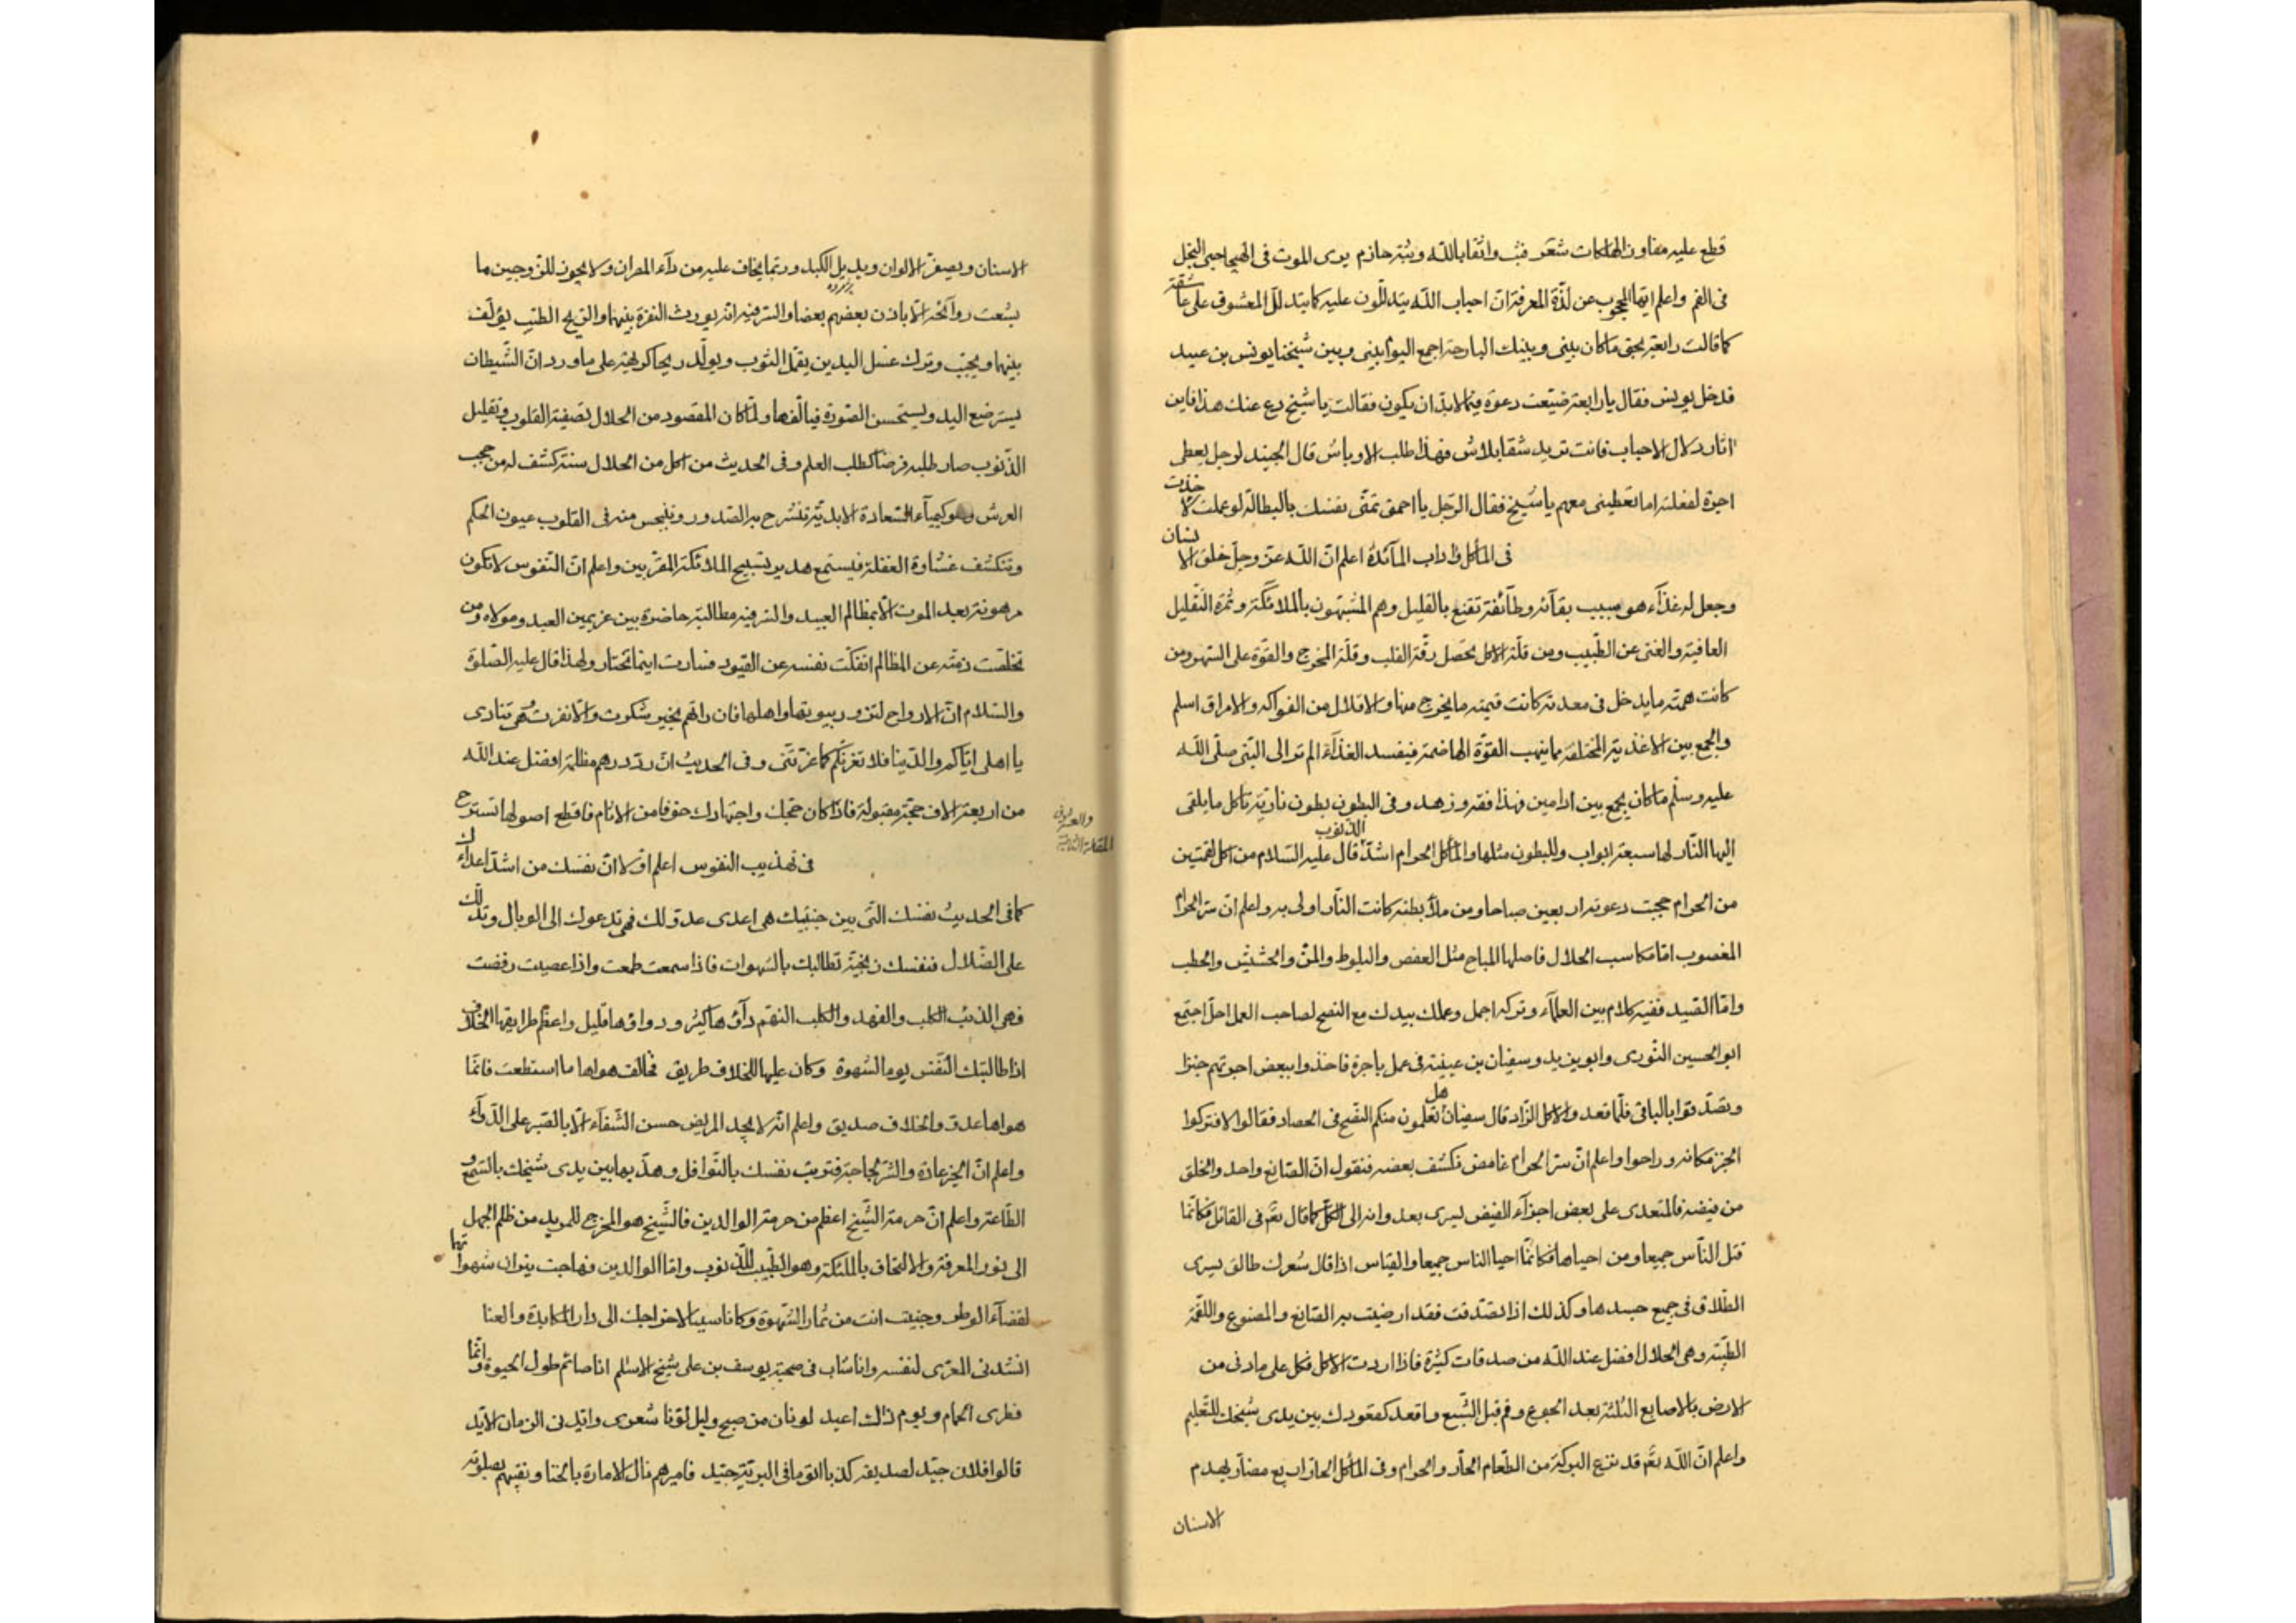 قطع عليه مفاوز الهلكات شعر فثب واثقا بالله وثبة حازم يرى الموت في الهيجا جنى النحل
في الفم واعلم ايها المحجوب عن لذة المعرفة ان احباب الله يتدللون عليه كما يتدلل المعشوق على عاشقه
كما قالت رابعة بحق ما كان بيني وبينك البارحة اجمع اليوم بيني وبين شيخنا يونس بن عبيد
فدخل يونس فقال يا رابعة ضيعت دعوة فيما لا بد ان يكون فقالت يا شيخ دع عنك هذا فاين
اثار دلال الاحباب فانت تريد شقا بلاش فهذا طلب الاوباش قال الجنيد لرجل يعطى
اجرة لفعلته اما تعطينى معهم يا شيخ فقال الرجل يا احمق تمنى نفسك بالبطالة لو عملت لاخذت
في المأكل واداب المآئدة اعلم ان الله عز وجل خلق الانسان
وجعل له غذآء هو سبب بقآئه وطآئفة تقنع بالقليل وهم المشبهون بالملائكة وثمرة التقليل
العافية والغنى عن الطبيب ومن قلة الاكل تحصل رقة القلب وقلة المخرج والقوة على السهر ومن
كانت همته ما يدخل في معدته كانت قيمته ما يخرج منها والاقلال من الفواكه والامراق اسلم
والجمع بين الاغذية المختلفة مما ينهب القوة الهاضمة فيفسد الغذآء الم تر الى النبى صلى الله
عليه وسلم ما كان يجمع بين ادامين فهذا فقه وزهد وفى البطون بطون نارية تاكل ما يلقى
اليها النار لها سبعة ابواب وللبطون مثلها والمأكل الحرام اشد الذنوب قال عليه السلام من اكل لقمتين
من الحرام حجبت دعوته اربعين صباحا ومن ملأ بطنه كانت النار اولى به واعلم ان سر الحرام
المغصوب اما مكاسب الحلال فاصلها المباح مثل العفص والبلوط والمن والحشيش والحطب
واما الصيد ففيه كلام بين العلمآء وتركه اجمل وعملك بيدك مع النصح لصاحب العمل احل اجتمع
ابو الحسين النورى وابو يزيد وسفيان بن عيينة في عمل باجرة فاخذوا ببعض اجرتهم خبزا
وتصدقوا بالباقى فلما قعدوا لاكل الزاد قال سفيان هل تعلمون منكم النصح في الحصاد فقالوا لا فتركوا
الخبز مكانه وراحوا واعلم ان سر الحرام غامض نكشف بعضه فنقول ان الصانع واحد والخلق
من فيضه فالمتعدى على بعض اجزآء الفيض يسرى بعدوانه الى الكل كما قال تعم في القاتل فكانما
قتل الناس جميعا ومن احياها فكانما احيا الناس جميعا والقياس اذا قال شعرك طالق يسرى
الطلاق في جميع جسدها وكذلك اذا تصدقت فقد ارضيت به الصانع والمصنوع واللقمة
الطيبة وهى الحلال افضل عند الله من صدقات كثيرة فاذا اردت الاكل فكل على ما دنى من
الارض بالاصابع الثلثة بعد الجوع وقم قبل الشبع واقعد كقعودك بين يدى شيخك للتعليم
واعلم ان الله تعم قد نزع البركة من الطعام الحآر والحرام وفى المأكل الحار اربع مضآر يهدم
الاسنان
الاسنان ويصفر الالوان ويذيل الكبد وربما يخاف عليه من دآء المصران ولا يجوز للزوجين ما
يشعث روآئحه الا باذن بعضهم بعضا والسر فيه انه يورث النفرة بينهما والريح الطيب يؤلف
بينهما ويحبب وترك غسل اليدين يقمل الثوب ويولد ريحا كريهة على ما ورد ان الشيطان
يسترضع اليد ويستحسن الصورة فيالفها ولما كان المقصود من الحلال تصفية القلوب وتقليل
الذنوب صار طلبه فرضا كطلب العلم وفى الحديث من اكل من الحلال سنة كشف له من حجب
العرش وهو كيميآء السعادة الابدية تنشرح به الصدور وتنبجس منه في القلوب عيون الحكم
وتنكشف غشاوة الغفلة فيستمع هدير تسبيح الملائكة المقربين واعلم ان النفوس لا تكون
مرهونة بعد الموت الا بمظالم العبيد والسر فيه مطالبة حاضرة بين غريمين العبد ومولاه ومن
تخلصت ذمته عن المظالم انفكت نفسه عن القيود فسارت اينما تختار ولهذا قال عليه الصلوة
والسلام ان الارواح لتزور بيوتها واهلها فان راتهم بخير شكرت والا نفرت وهى تنادى
يا اهلى اياكم والدنيا فلا تغرنكم كما غرتنى وفى الحديث ان رد درهم مظلمة افضل عند الله
من اربعة الاف حجة مقبولة فاذا كان حجك واجتهادك حقوقا من الانام فاقطع اصولها تسترح
والعشرون
المقالة الثانية
في تهذيب النفوس اعلم اولا ان نفسك من اشد اعدآئك
كما في الحديث نفسك التى بين جنبيك هى اعدى عدو لك فهى تدعوك الى الوبال وتدلك
على الضلال فنفسك زنجية تطالبك بالشهوات فاذا سمعت طمعت واذا عصيت رفضت
فهى الذئب الكلب والفهد والكلب النهم دآؤها كثير ودواؤها قليل واعظم طرايقها الخلاف
اذا طالبتك النفس يوما لشهوة وكان عليها للخلاف طريق فخالف هواها ما استطعت فانما
هواها عدو والخلاف صديق واعلم انه لا يجد المريض حسن الشفآء الا بالصبر على الدوآء
واعلم ان الخير عادة والشر لجاجة فتوبت نفسك بالنوافل وهذبها بين يدى شيخك بالسمع و
الطاعة واعلم ان حرمة الشيخ اعظم من حرمة الوالدين فالشيخ هو المخرج للمريد من ظلم الجهل
الى نور المعرفة والالتحاق بالملئكة وهو الطبيب للذنوب واما الوالدين فهاجت نيران شهواتها
لقضآء الوطر وجنيت انت من ثمار الشهوة وكانا سببا لاخراجك الى دار المكابدة والعنا
انشدنى المعرى لنفسه وانا شاب في صحبة يوسف بن على شيخ الاسلم انا صائم طول الحيوة وانما
فطرى الحمام ويوم ذاك اعيد لونان من صبح وليل لونا شعرى وايدنى الزمان الايد
قالوا فلان جيد لصديقه كذبا اتوا ما في البرية جيد فاميرهم نال الامارة بالخنا وتقيهم بصلوته